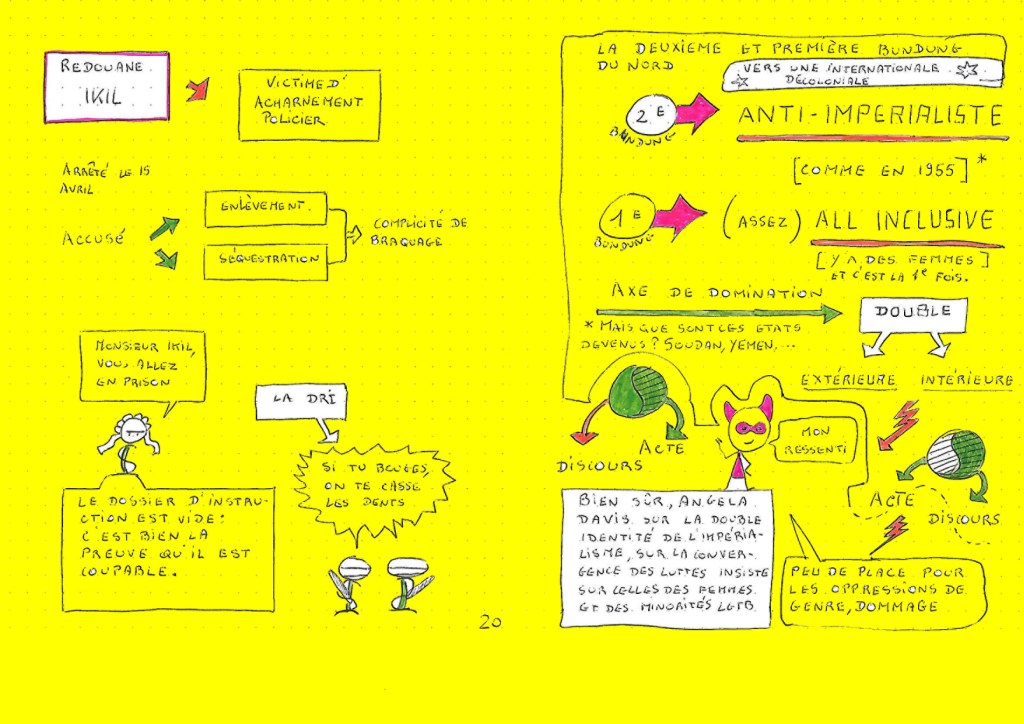 REDOUANE
IKIL
VICTIME D'
ACHARNEMENT
POLICIER
ARRÊTÉ LE 15
AVRIL
ACCUSÉ
ENLÈVEMENT.
SÉQUESTRATION
COMPLICITÉ DE
BRAQUAGE
MONSIEUR IKIL,
VOUS ALLEZ
EN PRISON
LE DOSSIER D'INSTRU-
CTION EST VIDE:
C'EST BIEN LA
PREUVE QU'IL EST
COUPABLE.
LA DRI
SI TU BOUGES,
ON TE CASSE
LES DENTS
20
LA DEUXIEME ET PREMIÈRE BUNDUNG
DU NORD
VERS UNE INTERNATIONALE
DÉCOLONIALE
2E
BUNDUNG
ANTI-IMPERIALISTE
[COMME EN 1955]*
1E
BUNDUNG
(ASSEZ) ALL INCLUSIVE
[Y A DES FEMMES]
ET C'EST LA 1e FOIS.
AXE DE DOMINATION
DOUBLE
* MAIS QUE SONT CES ETATS
DEVENUS? SOUDAN, YEMEN,...
EXTÉRIEURE
INTÉRIEURE
ACTE
DISCOURS
MON
RESSENTI
ACTE
DISCOURS
BIEN SÛR, ANGELA
DAVIS SUR LA DOUBLE
IDENTITÉ DE L'IMPÉRIA-
LISME, SUR LA CONVER-
GENCE DES LUTTES INSISTE
SUR CELLES DES FEMMES
ET DES MINORITÉS LGTB.
PEU DE PLACE POUR
LES OPPRESSIONS DE
GENRE, DOMMAGE